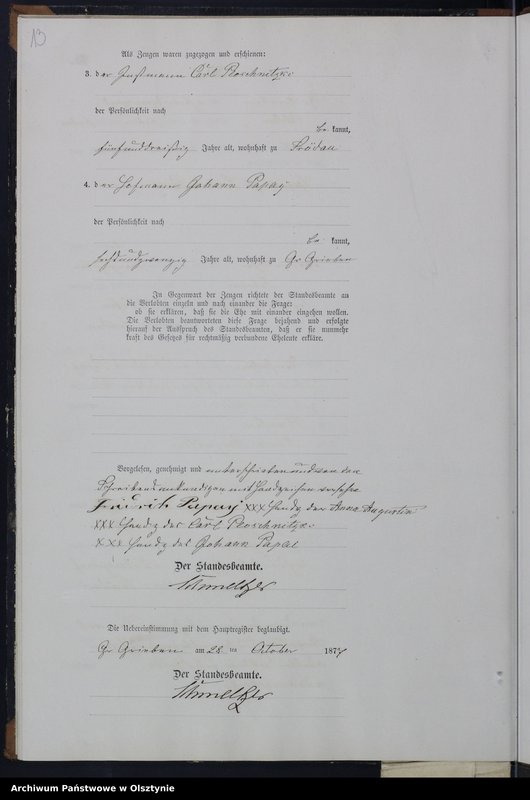 13
Als Zeugen waren zugezogen und erschienen:
3. der Carl Ploschnitzki
der Persönlichkeit nach
be kannt,
fünfunddreißig Jahre alt, wohnhaft zu Frödau
4. der Hofmann Johann Papay
der Persönlichkeit nach
be kannt,
sechsundzwanzig Jahre alt, wohnhaft zu Gr Grieben
In Gegenwart der Zeugen richtete der Standesbeamte an
die Verlobten einzeln und nach einander die Frage:
ob sie erklären, daß sie die Ehe mit einander eingehen wollen.
Die Verlobten beantworteten diese Frage bejahend und erfolgte
hierauf der Ausspruch des Standesbeamten, daß er sie nunmehr
kraft des Gesetzes für rechtmäßig verbundene Eheleute erkläre.
Vorgelesen, genehmigt und unterschrieben und von den
Schreibensunkundigen mit Handzeichen versehen
Fridrih Papay XXX Handz der Anna Augustin
XXX Handz des Carl Ploschnitzki
XXX Handz des Johann
Der Standesbeamte.
Die Uebereinstimmung mit dem Hauptregister beglaubigt.
Gr Grieben am 28 ten October 1877
Der Standesbeamte.
Archiwum Państwowe w Olsztynie